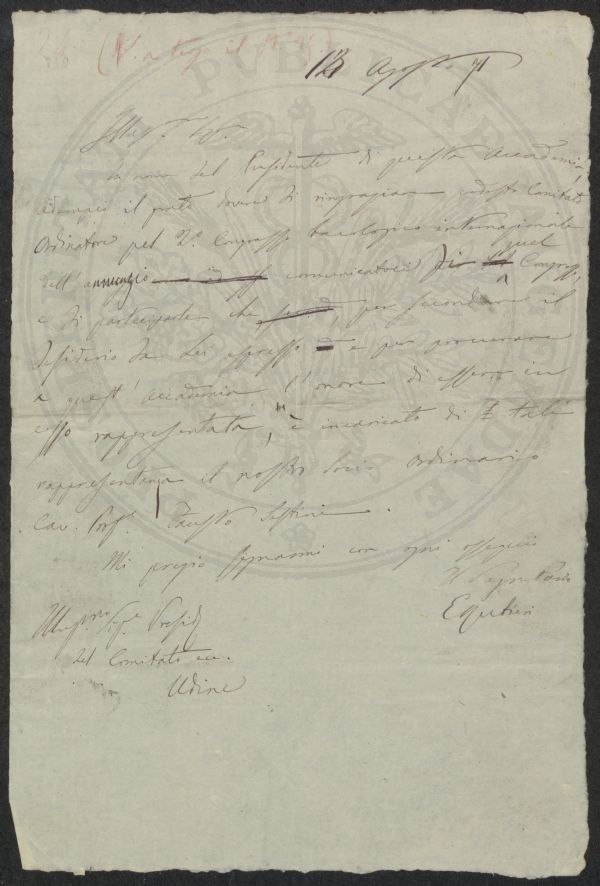 (V. a tergo il
13 Agosto 71
Illmo Sigr
In nome del Presidente di questa Accademia
il grato dovere di ringraziare codesto Comitato
Ordinatore pel 2° Congresso bacologico internazionale
dell'annunzio comunicatoci di quel Congresso,
e di partecipare che, per secondare il
desiderio da Lei espresso e per procurare
a quest'Accademia l'onore di essere in
esso rappresentata, è incaricato di tale
rappresentanza il nostro Socio Ordinario
Cav. Prof. Fausto Sestini.
Mi pregio segnarmi con ogni ossequio
Il Segretario
Illmo Sigr Presid
del Comitato ecc.
Udine